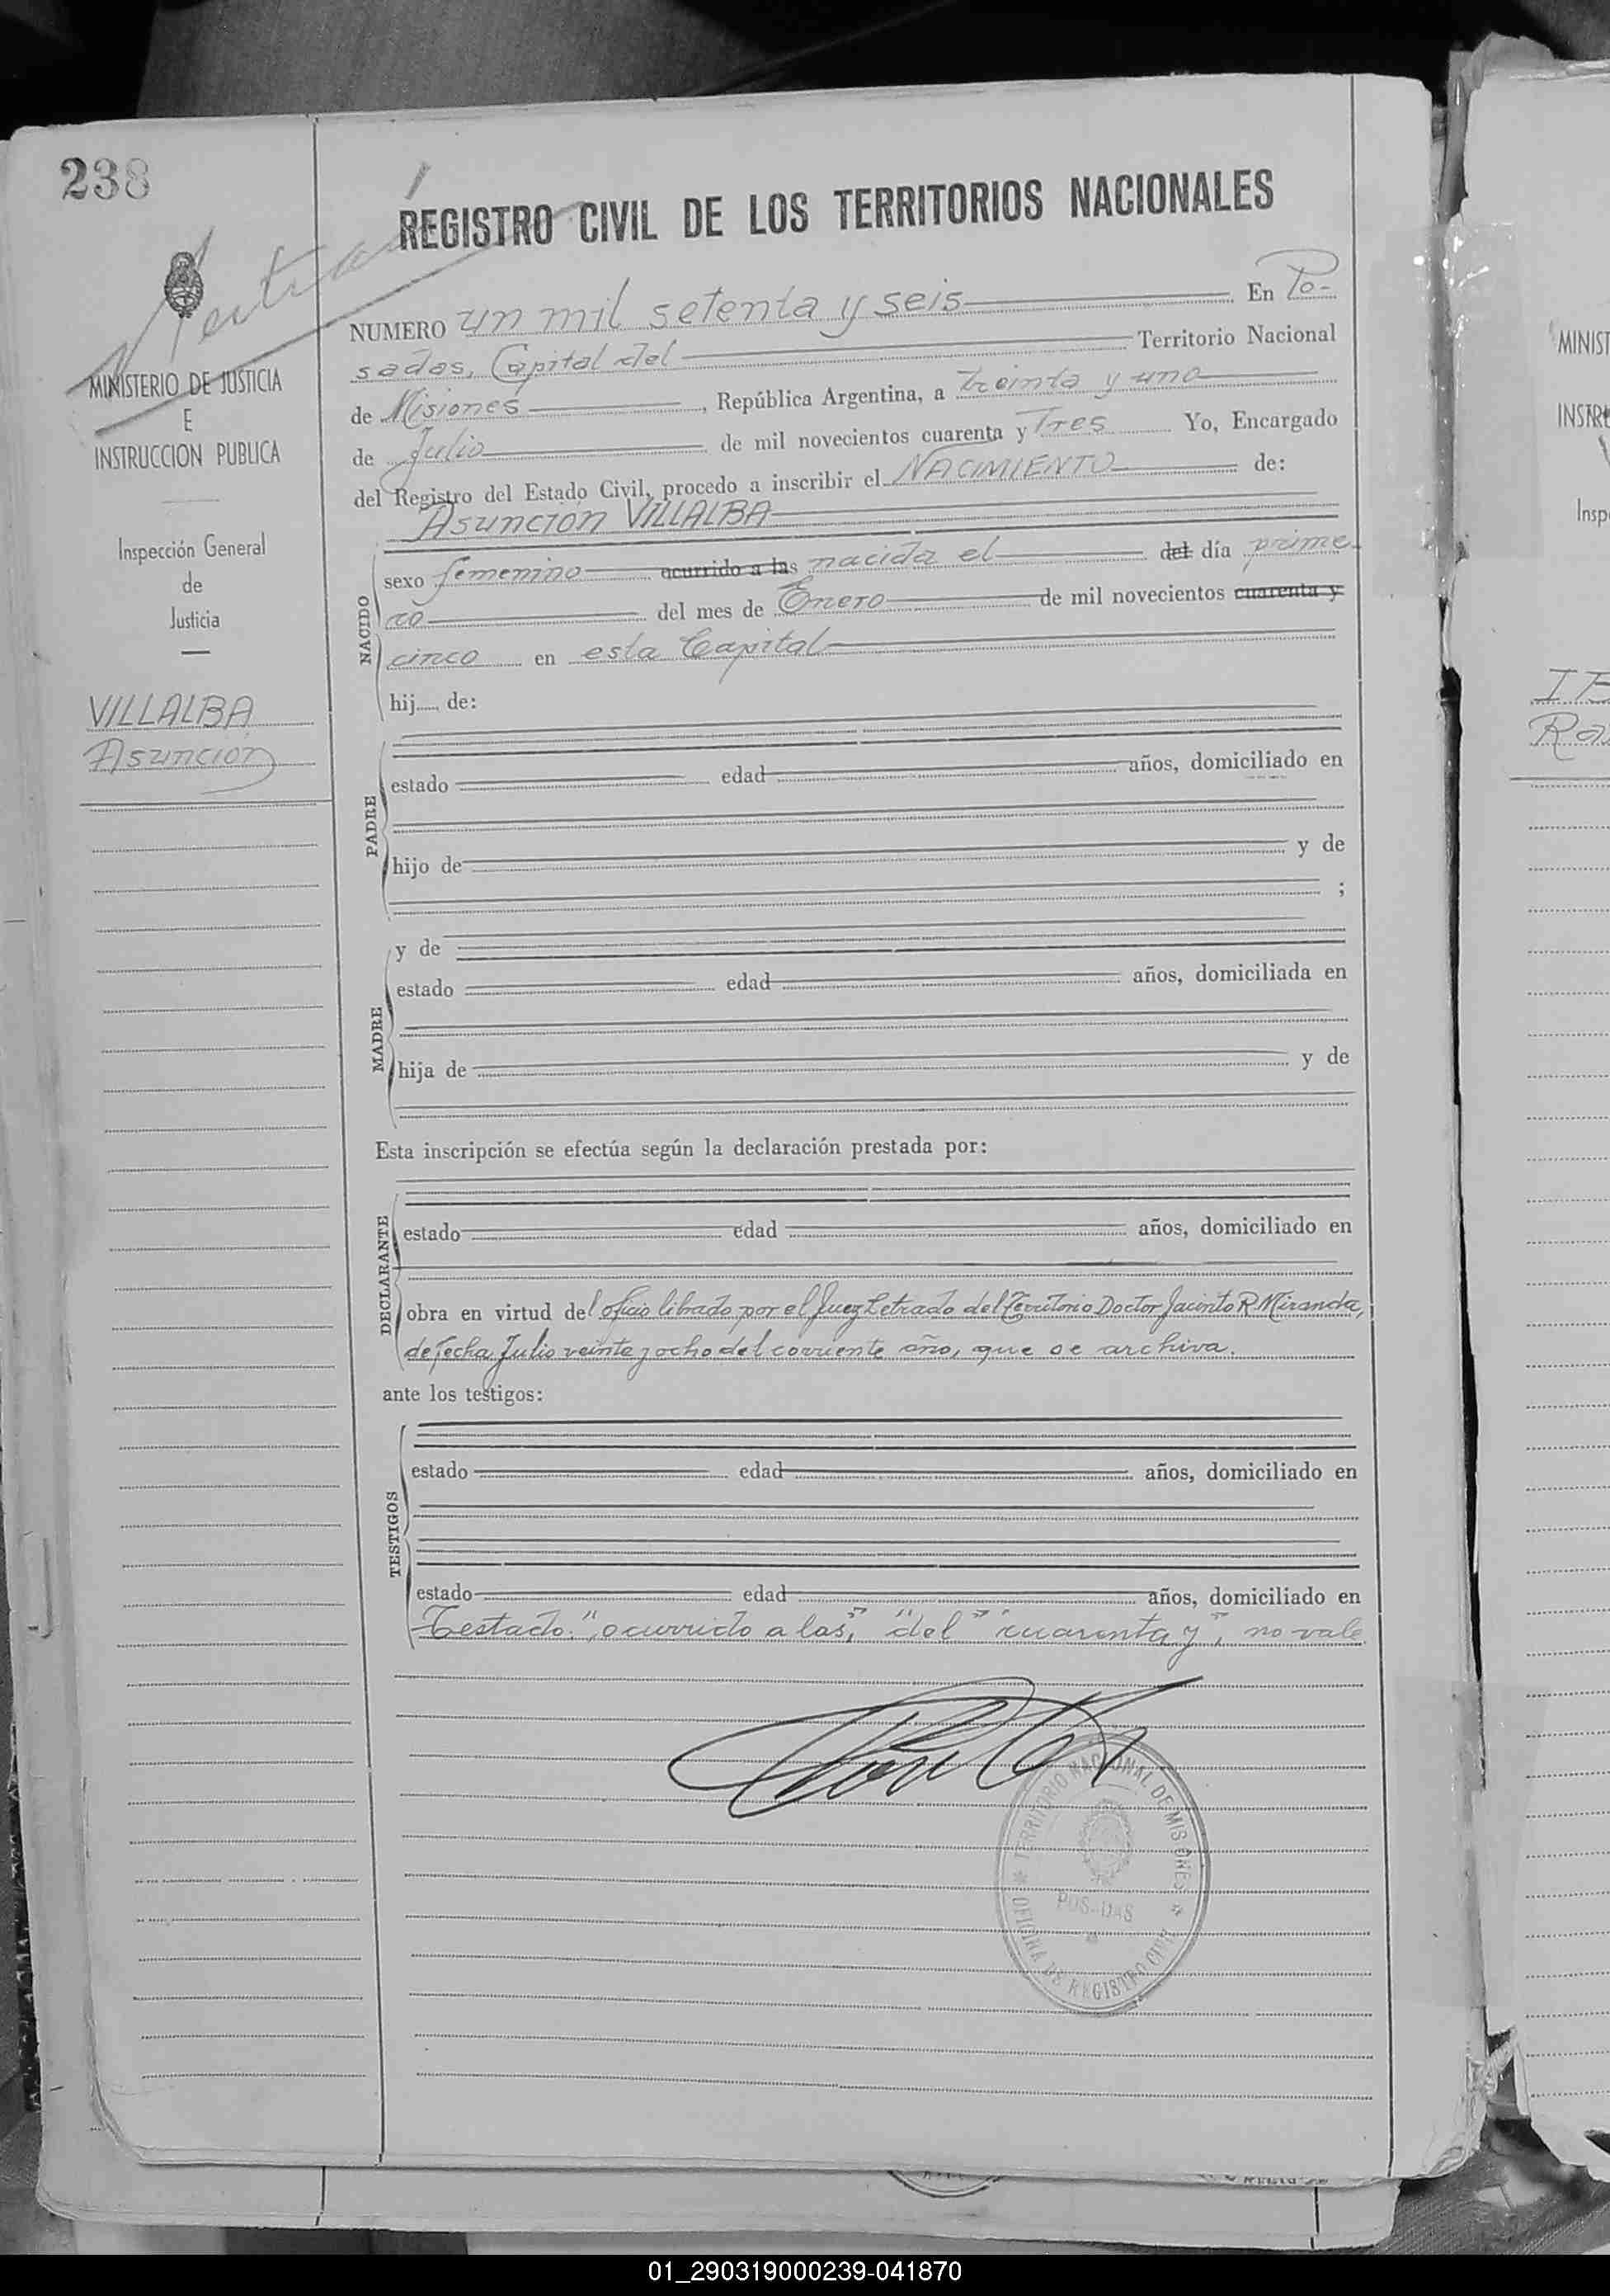 238
REGISTRO CIVIL DE LOS TERRITORIOS NACIONALES
MINISTERIO DE JUSTICIA
E
INSTRUCCION PUBLICA
Inspección General
de
Justicia
VILLALBA
Asuncion
NUMERO un mil setenta y seis En Po-
sadas, Capital del Territorio Nacional
de Misiones, República Argentina, a treinta y uno
de Julio de mil novecientos cuarenta y Tres Yo, Encargado
del Registro del Estado Civil, procedo a inscribir el NACIMIENTO de:
Asuncion VILLALBA
NACIDO
sexo femenino ocurrido a las nacida el del día prime-
ro del mes de Enero de mil novecientos cuarenta y
cinco en esta Capital
hij...... de:
PADRE
estado edad años, domiciliado en
hijo de y de
;
MADRE
y de
estado edad años, domiciliada en
hija de y de
Esta inscripción se efectúa según la declaración prestada por:
DECLARANTE
estado edad años, domiciliado en
obra en virtud del oficio librado por el Juez Letrado del Territorio Doctor Jacinto R. Miranda,
de fecha Julio veinte y ocho del corriente año, que se archiva.
ante los testigos:
TESTIGOS
estado edad años, domiciliado en
estado edad años, domiciliado en
Testado: "ocurrido a las", "del" "cuarenta y", no vale
TERRITORIO NACIONAL DE MISIONES
POSADAS
OFICINA DE REGISTRO CIVIL
MINIST
INSTRU
Insp
Ra
01_290319000239-041870